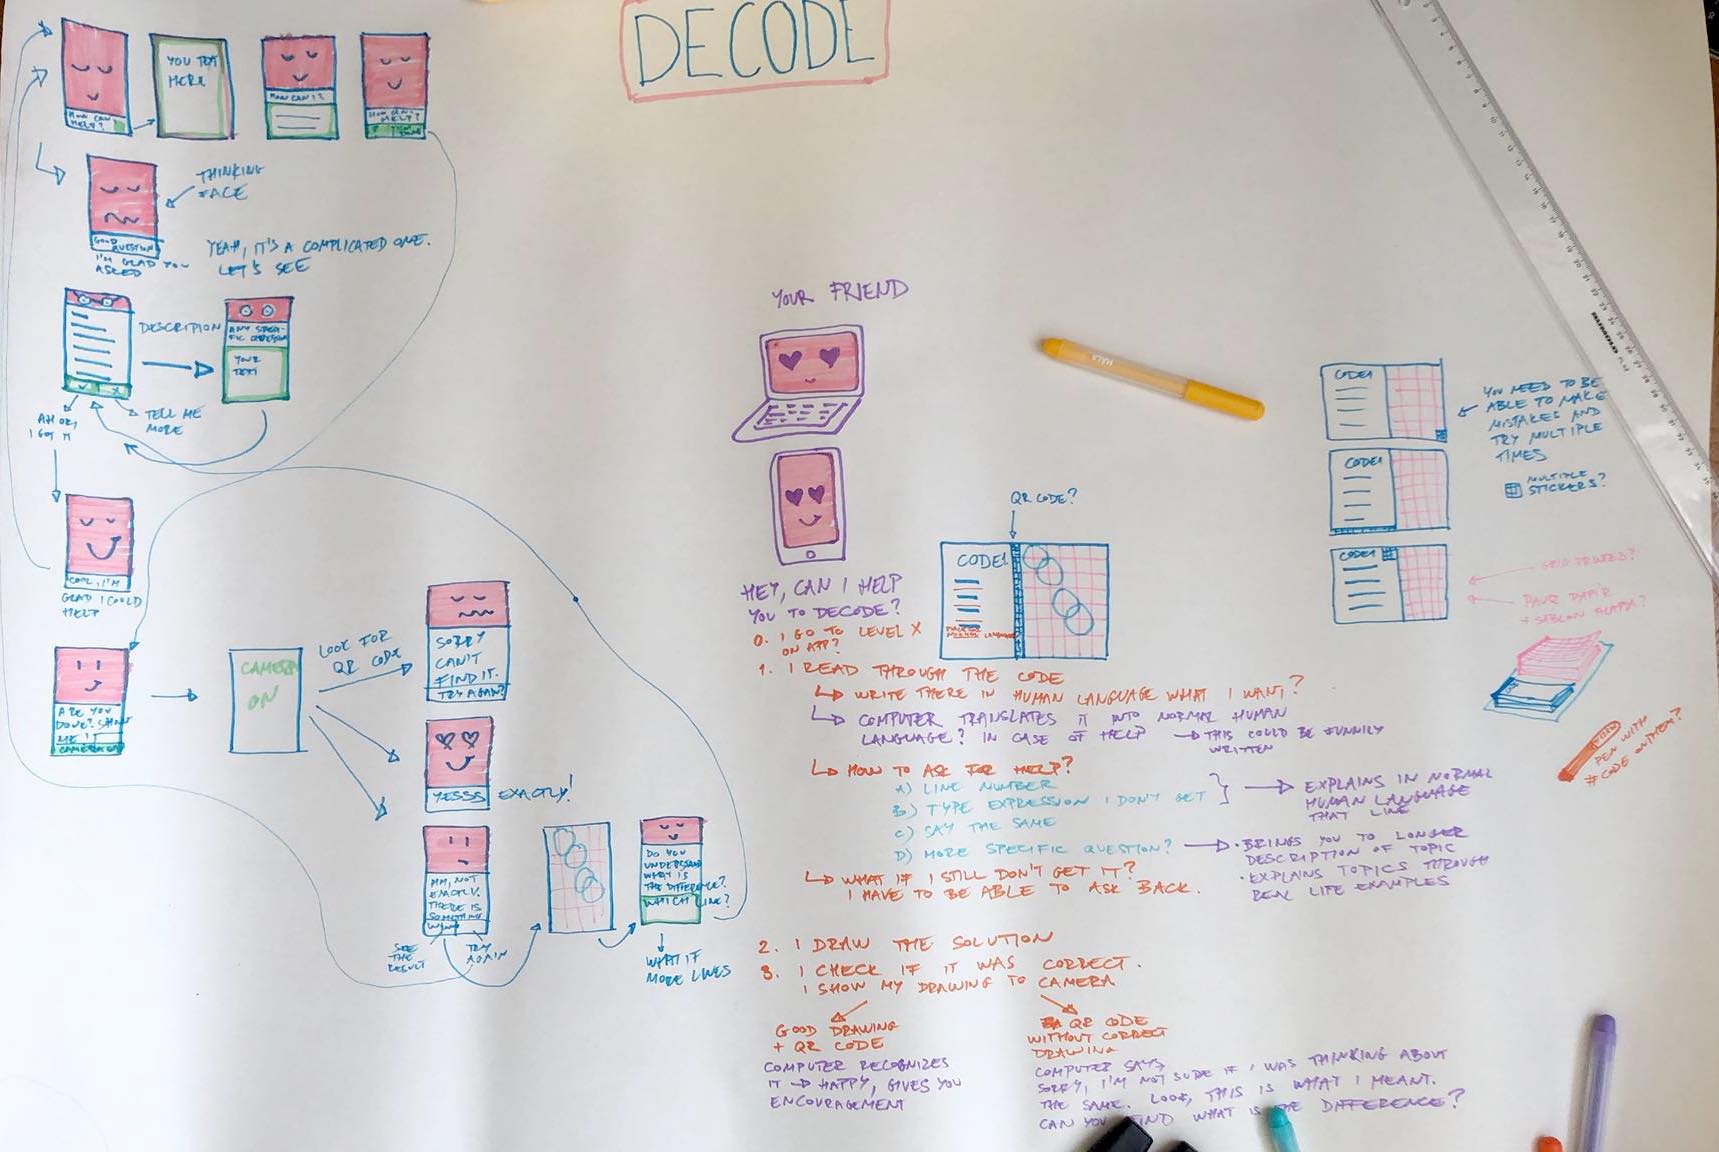 DECODE
HOW CAN I
HELP?
YOU TEXT
HERE
HOW CAN I?
HOW CAN I
HELP?
THINKING
FACE
GOOD
QUESTION
I'M GLAD YOU
ASKED
YEAH, IT'S A COMPLICATED ONE.
LET'S SEE
DESCRIPTION
ANY SPECI-
FIC QUESTION
YOUR
TEXT
AH OK,
I GOT IT
TELL ME
MORE
COOL, I'M
GLAD I COULD
HELP
ARE YOU
DONE? SHOW
ME!
CAMERA ON
CAMERA
ON
LOOK FOR
QR CODE
SORRY
CAN'T
FIND IT.
TRY AGAIN?
YESSS
EXACTLY!
MM, NOT
EXACTLY.
THERE IS
SOMETHING
WRONG
SEE
THE
RESULT
TRY
AGAIN
DO YOU
UNDERSTAND
WHAT IS
THE DIFFERENCE?
WHICH LINE?
WHAT IF
MORE LINES
YOUR FRIEND
HEY, CAN I HELP
YOU TO DECODE?
QR CODE?
CODE1
PLACE FOR
NORMAL LANGUAGE
0. I GO TO LEVEL X
ON APP?
1. I READ THROUGH THE CODE
WRITE THERE IN HUMAN LANGUAGE WHAT I WANT?
COMPUTER TRANSLATES IT INTO NORMAL HUMAN
LANGUAGE? IN CASE OF HELP → THIS COULD BE FUNNILY
WRITTEN
HOW TO ASK FOR HELP?
A) LINE NUMBER
B) TYPE EXPRESSION I DON'T GET
C) SAY THE SAME
EXPLAINS IN NORMAL
HUMAN LANGUAGE
THAT LINE
D) MORE SPECIFIC QUESTION? → • BRINGS YOU TO LONGER
DESCRIPTION OF TOPIC
• EXPLAINS TOPICS THROUGH
REAL LIFE EXAMPLES
WHAT IF I STILL DON'T GET IT?
I HAVE TO BE ABLE TO ASK BACK.
2. I DRAW THE SOLUTION
3. I CHECK IF IT WAS CORRECT.
I SHOW MY DRAWING TO CAMERA
GOOD DRAWING
+ QR CODE
COMPUTER RECOGNIZES
IT → HAPPY, GIVES YOU
ENCOURAGEMENT
QR CODE
WITHOUT CORRECT
DRAWING
COMPUTER SAYS
SORRY, I'M NOT SURE IF I WAS THINKING ABOUT
THE SAME. LOOK, THIS IS WHAT I MEANT.
CAN YOU FIND WHAT IS THE DIFFERENCE?
CODE1
CODE1
CODE1
YOU NEED TO BE
ABLE TO MAKE
MISTAKES AND
TRY MULTIPLE
TIMES
MULTIPLE
STICKERS?
PEN WITH
# CODE ON THEM?